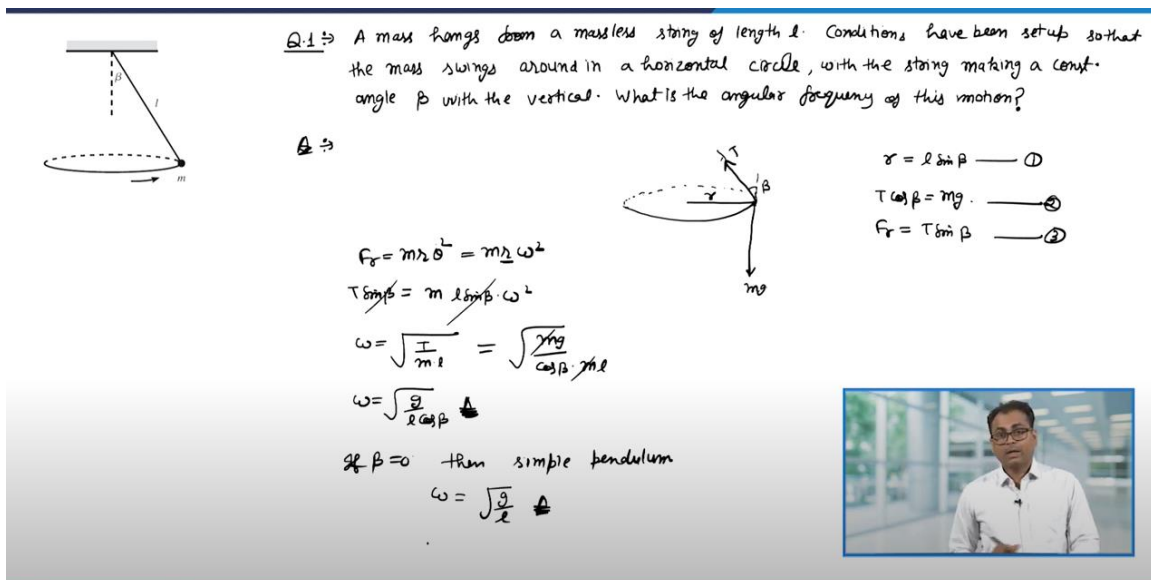 Q.1 ⇒ A mass hangs from a massless string of length l. Conditions have been set up so that
the mass swings around in a horizontal circle, with the string making a const.
angle β with the vertical. What is the angular frequeny of this motion?
β
l
m
A ⇒
T
β
r
mg
r = l sin β —— ①
T cos β = mg. —— ②
Fr = T sin β —— ③
Fr = mrθ̇² = mrω²
T sinβ = m l sinβ · ω²
ω = √(T/m·l) = √(mg/cosβ·ml)
ω = √(g/l cosβ) A
If β = 0 then simple pendulum
ω = √(g/l) A